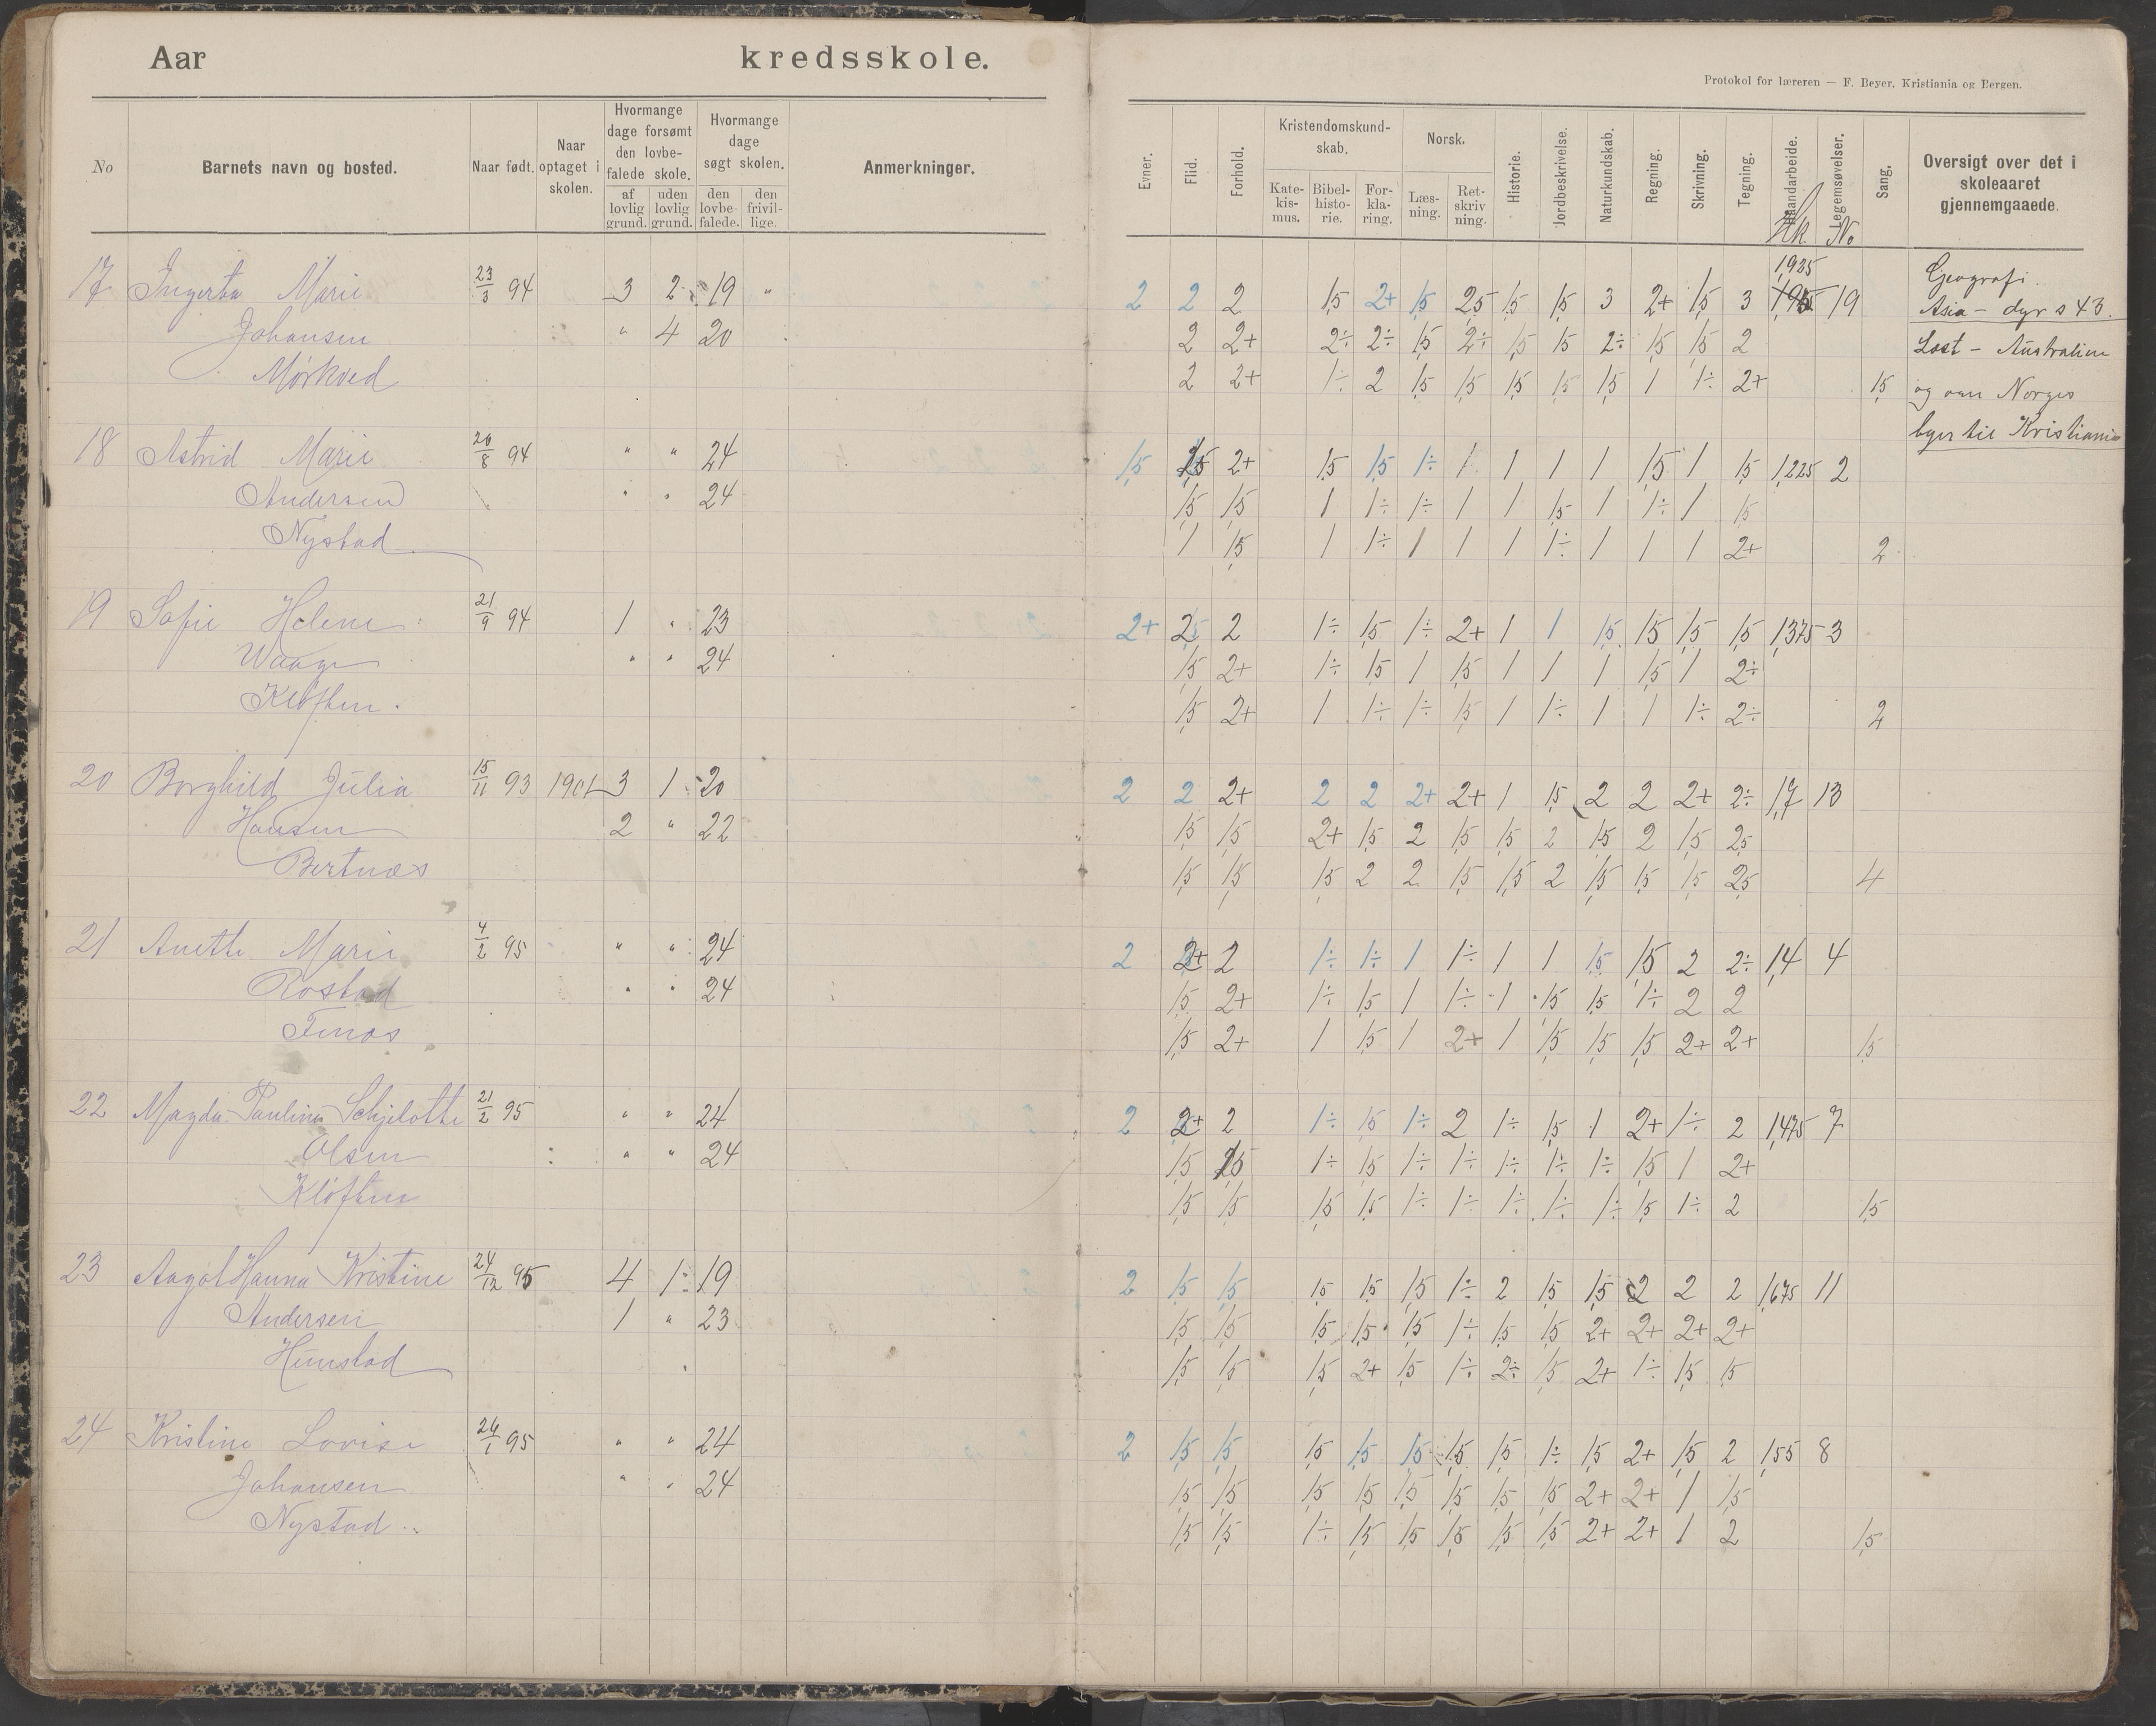 Aar kredsskole.
Protokol for læreren — F. Beyer, Kristiania og Bergen.
No
Barnets navn og bosted.
Naar født.
Naar optaget i skolen.
Hvormange dage forsømt den lovbefalede skole.
af lovlig grund.
uden lovlig grund.
Hvormange dage søgt skolen.
den lovbefalede.
den frivillige.
Anmerkninger.
Evner.
Flid.
Forhold.
Kristendomskundskab.
Katekismus.
Bibelhistorie.
Forklaring.
Norsk.
Læsning.
Retskrivning.
Historie.
Jordbeskrivelse.
Naturkundskab.
Regning.
Skrivning.
Tegning.
Haandarbeide.
Legemsøvelser.
Sang.
Oversigt over det i skoleaaret gjennemgaaede.
Hk. No
17 Ingerta Marie 23/3 94 3 2 19 " 2 2 2 1,5 2+ 1,5 2,5 1,5 1,5 3 2+ 1,5 3 1,935 19 Geografi.
Asia – dyr s 43.
Johansen " 4 20 2 2+ 2÷ 2÷ 1,5 2÷ 1,5 1,5 2÷ 1,5 1,5 2 Læst – Australien
Mørkved 2 2+ 1÷ 2 1,5 1,5 1,5 1,5 1,5 1 1÷ 2+ 1,5 og om Norges
byer til Kristiania
18 Astrid Marie 20/8 94 " " 24 1,5 1,5 2+ 1,5 1,5 1÷ 1 1 1 1 1,5 1 1,5 1,225 2
Andersen " " 24 1,5 1,5 1 1÷ 1÷ 1 1 1,5 1 1÷ 1 1,5
Nystad 1 1,5 1 1÷ 1 1 1 1÷ 1 1 1 2+ 2
19 Sofie Helene 21/9 94 1 " 23 2+ 2 2 1÷ 1,5 1÷ 2+ 1 1 1,5 1,5 1,5 1,5 1,375 3
Waage " " 24 1,5 2+ 1÷ 1,5 1 1,5 1 1 1 1,5 1 2÷
Kløften. 1,5 2+ 1 1÷ 1÷ 1,5 1 1÷ 1 1 1÷ 2÷ 2
20 Borghild Julia 15/11 93 1901 3 1 20 2 2 2+ 2 2 2+ 2+ 1 1,5 2 2 2+ 2÷ 1,7 13
Hansen 2 " 22 1,5 1,5 2+ 1,5 2 1,5 1,5 2 1,5 2 1,5 2,5
Bertnæs 1,5 1,5 1,5 2 2 1,5 1,5 2 1,5 1,5 1,5 2,5 4
21 Anette Marie 4/2 95 " " 24 2 2+ 2 1÷ 1÷ 1 1÷ 1 1 1,5 1,5 2 2÷ 1,4 4
Rostad " " 24 1,5 2+ 1÷ 1,5 1 1÷ 1 1,5 1,5 1÷ 2 2
1,5 2+ 1 1,5 1 2+ 1 1,5 1,5 1,5 2+ 2+ 1,5
22 Magda Pauline Schjelotte 21/2 95 " " 24 2 2+ 2 1÷ 1,5 1÷ 2 1÷ 1,5 1 2+ 1÷ 2 1,475 7
Olsen " " 24 1,5 1,5 1÷ 1,5 1÷ 1÷ 1÷ 1÷ 1÷ 1,5 1 2+
Kløften 1,5 1,5 1,5 1,5 1÷ 1÷ 1÷ 1÷ 1÷ 1,5 1÷ 2 1,5
23 Aagot Hanna Kristine 24/12 95 4 1 19 2 1,5 1,5 1,5 1,5 1,5 1÷ 2 1,5 1,5 2 2 2 1,675 11
Andersen 1 " 23 1,5 1,5 1,5 1,5 1,5 1÷ 1,5 1,5 2+ 2+ 2+ 2+
Hunstad 1,5 1,5 1,5 2+ 1,5 1÷ 2÷ 1,5 2+ 1÷ 1,5 1,5
24 Kristine Lovise 24/1 95 " " 24 2 1,5 1,5 1,5 1,5 1,5 1,5 1,5 1÷ 1,5 2+ 1,5 2 1,55 8
Johansen " " 24 1,5 1,5 1,5 1,5 1,5 1,5 1,5 1,5 2+ 2+ 1 1,5
Nystad 1,5 1,5 1÷ 1,5 1,5 1,5 1,5 1,5 2+ 2+ 1 2 1,5